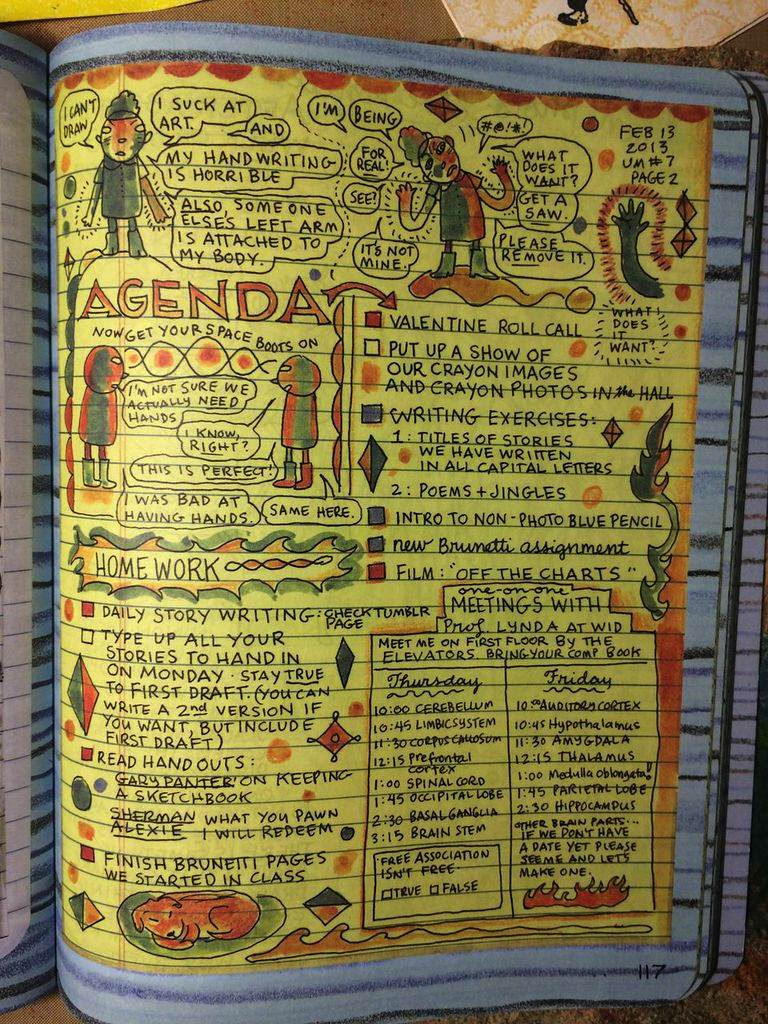 I CAN'T
DRAW
I SUCK AT
ART.
AND
MY HANDWRITING
IS HORRIBLE
ALSO, SOMEONE
ELSE'S LEFT ARM
IS ATTACHED TO
MY BODY.
I'M
BEING
FOR
REAL!
SEE?
IT'S NOT
MINE.
#@!*!
WHAT
DOES IT
WANT?
GET A
SAW.
PLEASE
REMOVE IT.
FEB 13
2013
UM#7
PAGE 2
WHAT!
DOES
IT
WANT?
AGENDA
NOW GET YOUR SPACE BOOTS ON
I'M NOT SURE WE
ACTUALLY NEED
HANDS
I KNOW,
RIGHT?
THIS IS PERFECT!
I WAS BAD AT
HAVING HANDS.
SAME HERE.
VALENTINE ROLL CALL
PUT UP A SHOW OF
OUR CRAYON IMAGES
AND CRAYON PHOTOS IN the HALL
WRITING EXERCISES:
1: TITLES OF STORIES
WE HAVE WRITTEN
IN ALL CAPITAL LETTERS
2: POEMS + JINGLES
INTRO TO NON-PHOTO BLUE PENCIL
new Brunetti assignment
FILM: "OFF THE CHARTS"
HOMEWORK
DAILY STORY WRITING: CHECK TUMBLR
PAGE
TYPE UP ALL YOUR
STORIES TO HAND IN
ON MONDAY - STAY TRUE
TO FIRST DRAFT. (YOU CAN
WRITE A 2nd VERSION IF
YOU WANT, BUT INCLUDE
FIRST DRAFT)
READ HANDOUTS:
GARY PANTER ON KEEPING
A SKETCHBOOK
SHERMAN WHAT YOU PAWN
ALEXIE I WILL REDEEM
FINISH BRUNETTI PAGES
WE STARTED IN CLASS
one-on-one
MEETINGS WITH
Prof. LYNDA AT WID
MEET ME ON FIRST FLOOR BY THE
ELEVATORS. BRING YOUR COMP BOOK
Thursday
10:00 CEREBELLUM
10:45 LIMBIC SYSTEM
11:30 CORPUS CALLOSUM
12:15 Prefrontal
cortex
1:00 SPINAL CORD
1:45 OCCIPITAL LOBE
2:30 BASAL GANGLIA
3:15 BRAIN STEM
FREE ASSOCIATION
ISN'T FREE.
TRUE FALSE
Friday
10:00 AUDITORY CORTEX
10:45 Hypothalamus
11:30 AMYGDALA
12:15 THALAMUS
1:00 Medulla oblongata!!
1:45 PARIETAL LOBE
2:30 HIPPOCAMPUS
OTHER BRAIN PARTS...
IF WE DON'T HAVE
A DATE YET PLEASE
SEE ME AND LET'S
MAKE ONE.
117